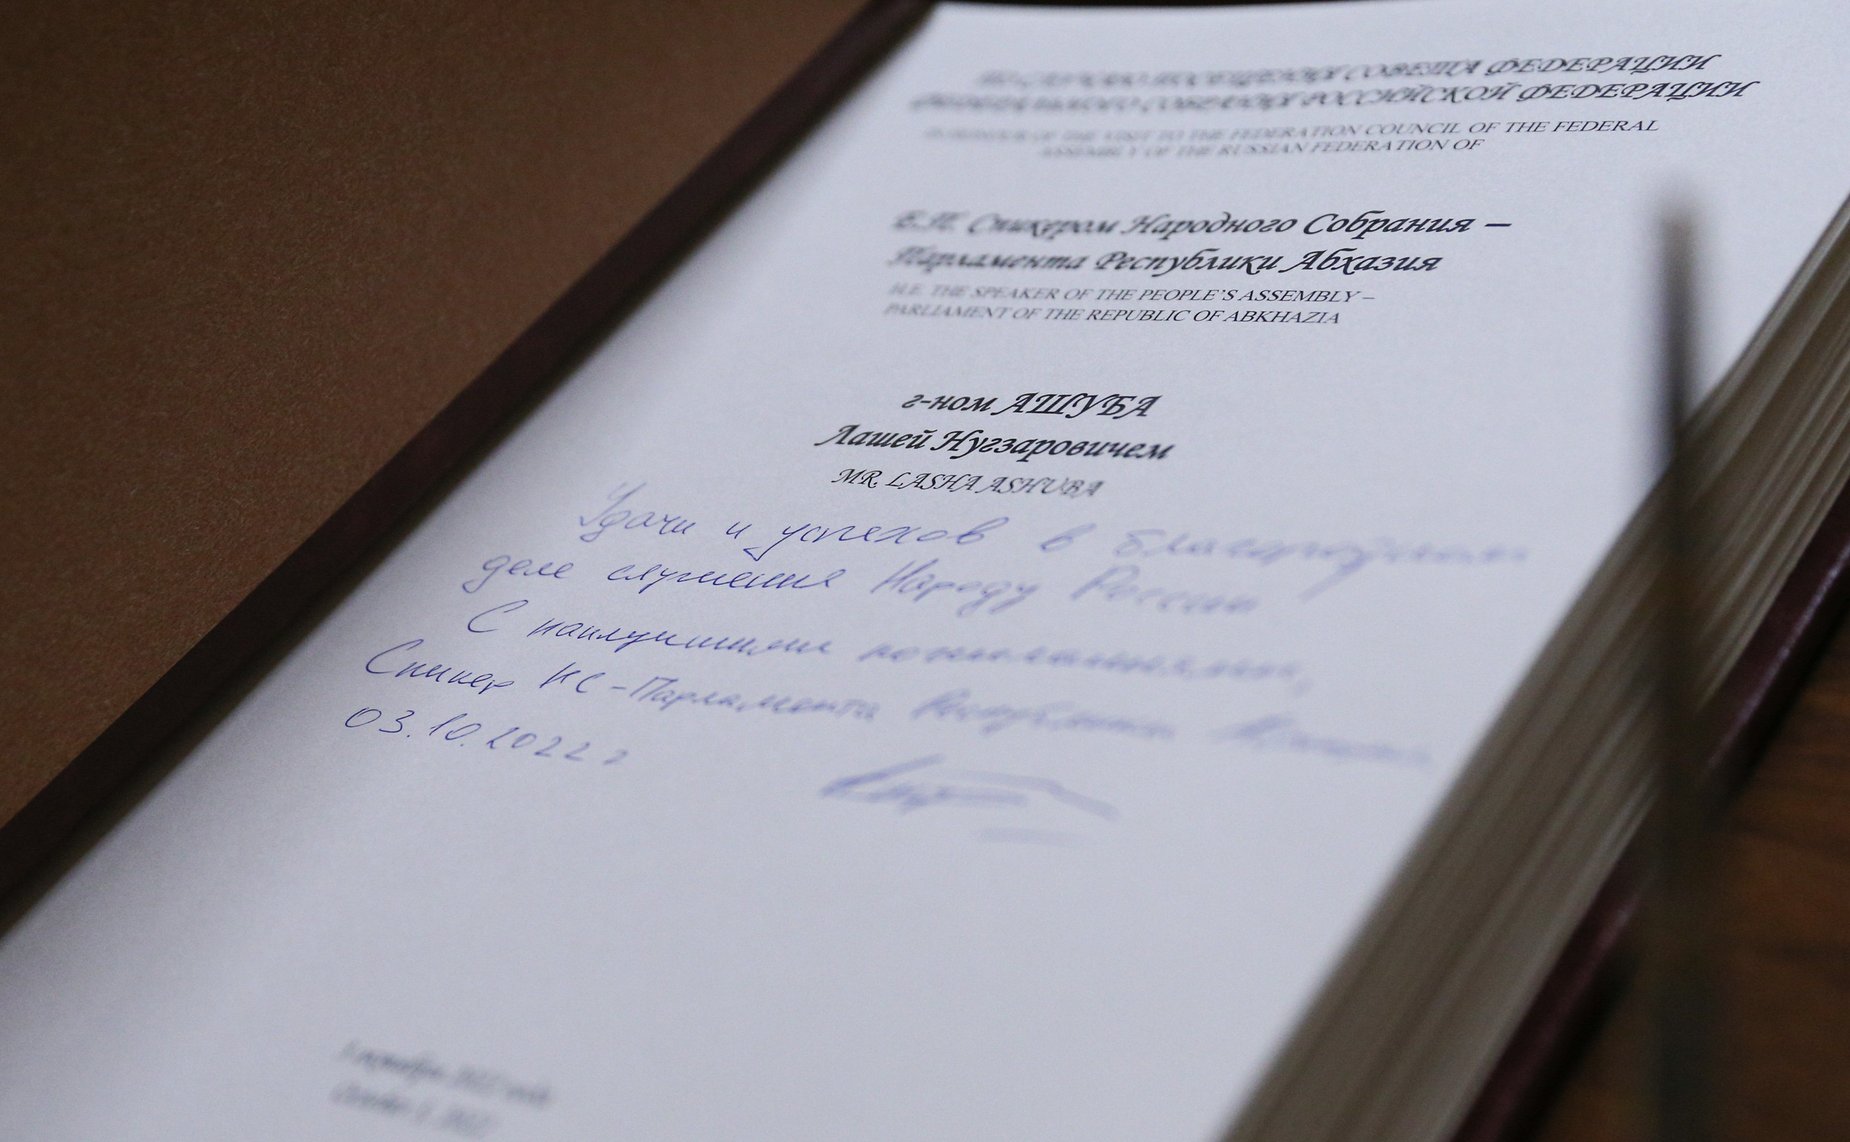 ПО СЛУЧАЮ ПОСЕЩЕНИЯ СОВЕТА ФЕДЕРАЦИИ
ФЕДЕРАЛЬНОГО СОБРАНИЯ РОССИЙСКОЙ ФЕДЕРАЦИИ
IN HONOUR OF THE VISIT TO THE FEDERATION COUNCIL OF THE FEDERAL
ASSEMBLY OF THE RUSSIAN FEDERATION OF
Е.П. Спикером Народного Собрания –
Парламента Республики Абхазия
H.E. THE SPEAKER OF THE PEOPLE'S ASSEMBLY –
PARLIAMENT OF THE REPUBLIC OF ABKHAZIA
г-ном АШУБА
Лашей Нугзаровичем
MR. LASHA ASHUBA
Удачи и успехов в благородном
деле служения Народу России
С наилучшими пожеланиями,
Спикер НС-Парламента Республики Абхазия
03.10.2022 г
3 октября 2022 года
October 3, 2022